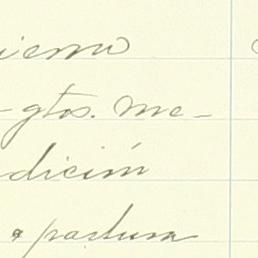 ierno
-gtos. me-
dición
a partura